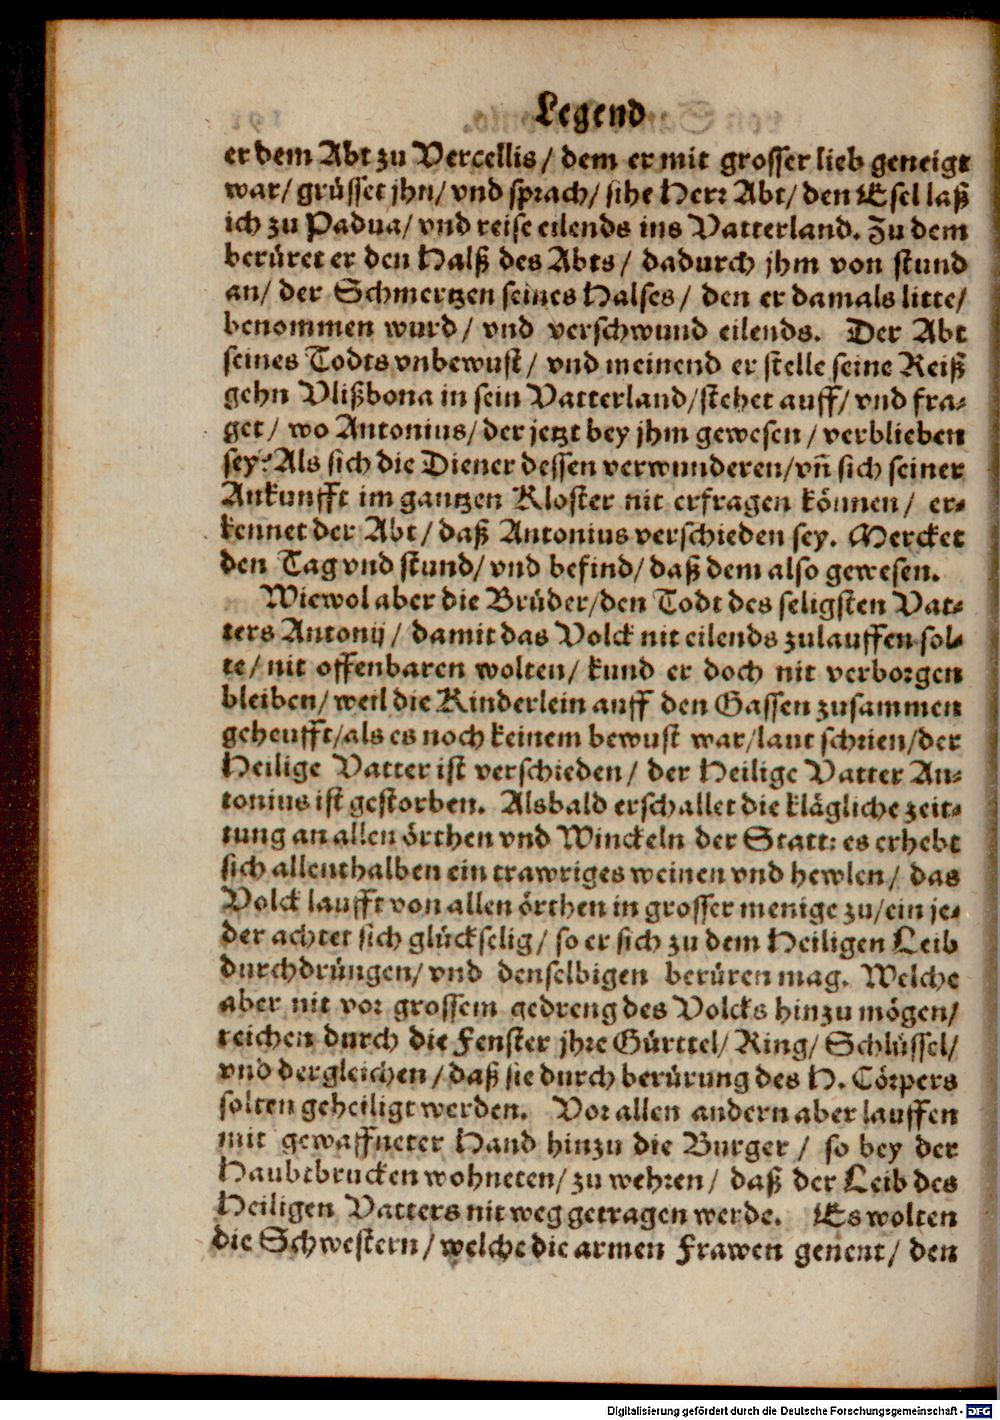 Legend
er dem Abt zu Vercellis/ dem er mit grosser lieb geneigt
war/ grüsset jhn/ vnd sprach/ sihe Herr Abt/ den Esel laß
ich zu Padua/ vnd reise eilends ins Vatterland. Zu dem
berüret er den Halß des Abts/ dadurch jhm von stund
an/ der Schmertzen seines Halses/ den er damals litte/
benommen wurd/ vnd verschwund eilends. Der Abt
seines Todts vnbewust/ vnd meinend er stelle seine Reiß
gehn Vlißbona in sein Vatterland/ stehet auff/ vnd fra-
get/ wo Antonius/ der jetzt bey jhm gewesen/ verblieben
sey? Als sich die Diener dessen verwunderen/ vñ sich seiner
Ankunfft im gantzen Kloster nit erfragen können/ er-
kennet der Abt/ daß Antonius verschieden sey. Mercket
den Tag vnd stund/ vnd befind/ daß dem also gewesen.
Wiewol aber die Brüder/ den Todt des seligsten Vat-
ters Antonij/ damit das Volck nit eilends zulauffen sol-
te/ nit offenbaren wolten/ kund er doch nit verborgen
bleiben/ weil die Kinderlein auff den Gassen zusammen
geheufft/ als es noch keinem bewust war/ laut schrien/ der
Heilige Vatter ist verschieden/ der Heilige Vatter An-
tonius ist gestorben. Alsbald erschallet die klägliche zeit-
tung an allen örthen vnd Winckeln der Statt: es erhebt
sich allenthalben ein trawriges weinen vnd hewlen/ das
Volck laufft von allen örthen in grosser menige zu/ ein je-
der achtet sich glückselig/ so er sich zu dem Heiligen Leib
durchdrüngen/ vnd denselbigen berüren mag. Welche
aber nit vor grossem gedreng des Volcks hinzu mögen/
reichen durch die Fenster jhre Gürttel/ Ring/ Schlüssel/
vnd dergleichen/ daß sie durch berürung des H. Cörpers
solten geheiligt werden. Vor allen andern aber lauffen
mit gewaffneter Hand hinzu die Burger/ so bey der
Haubtbrucken wohneten/ zu wehren/ daß der Leib des
Heiligen Vatters nit weg getragen werde. Es wolten
die Schwestern/ welche die armen Frawen genent/ den
Digitalisierung gefördert durch die Deutsche Forschungsgemeinschaft - DFG